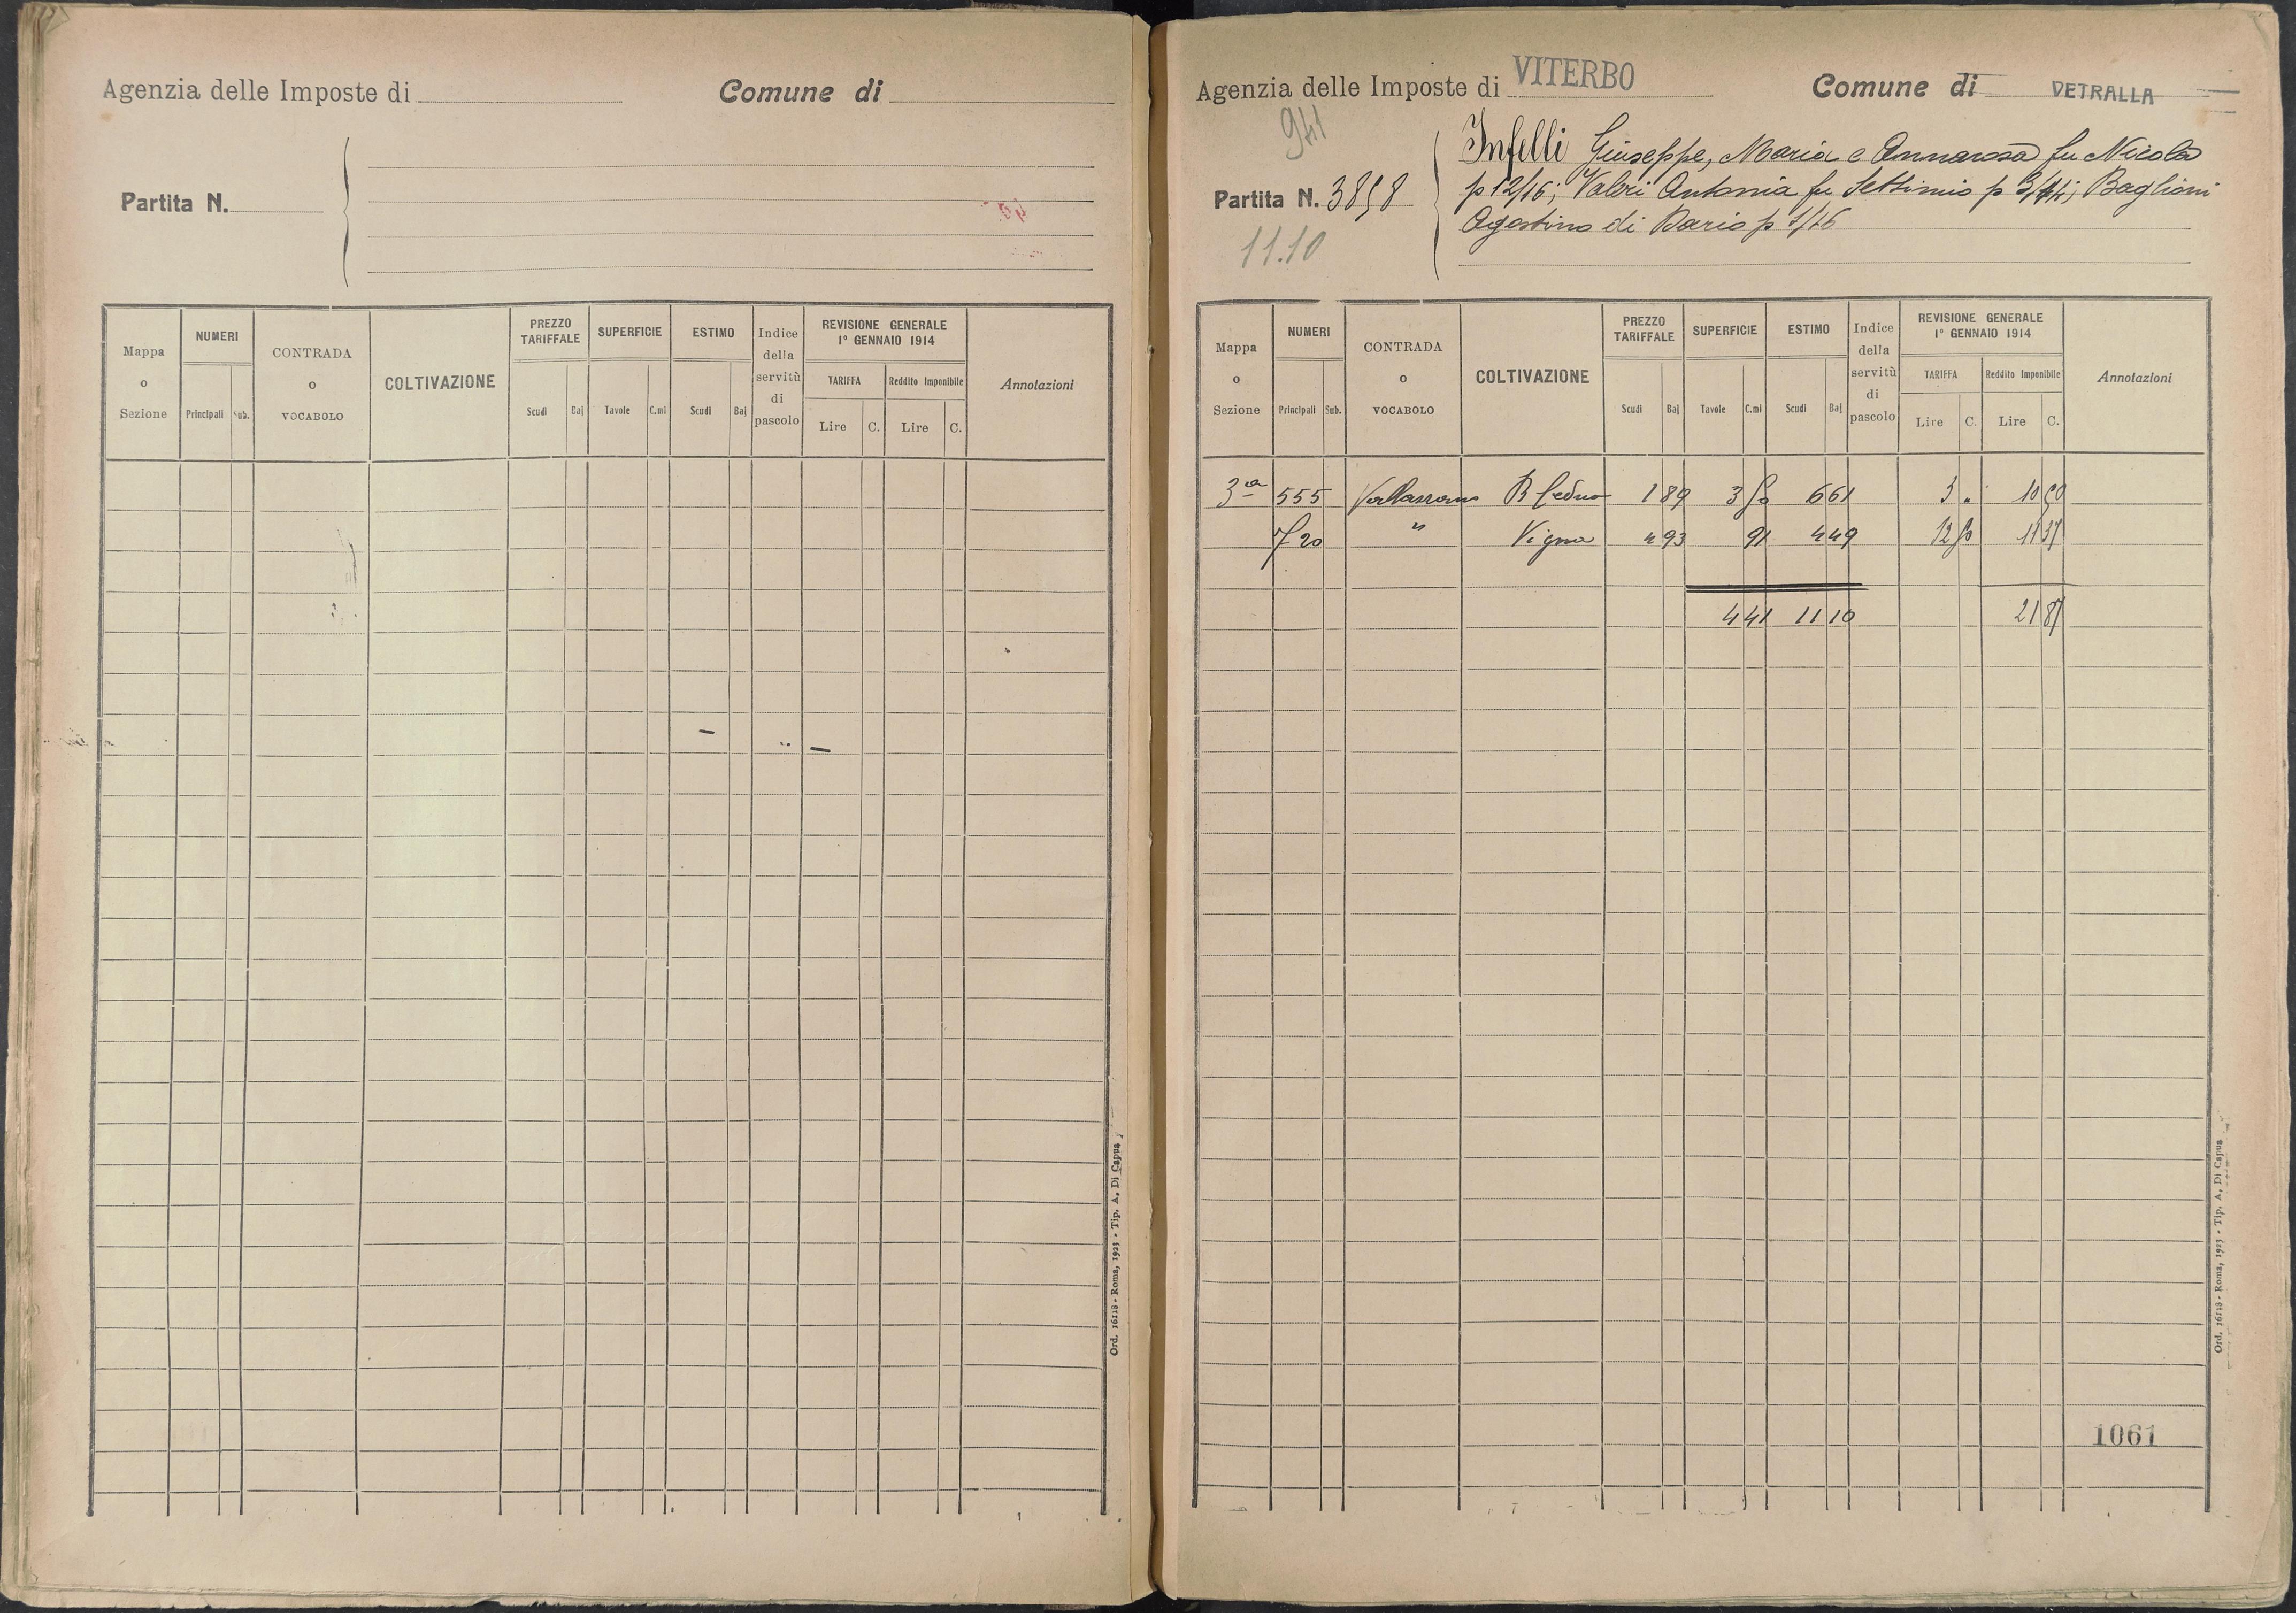 Agenzia delle Imposte di
Comune di
Partita N.
Mappa o Sezione
NUMERI
Principali
Sub.
CONTRADA o VOCABOLO
COLTIVAZIONE
PREZZO TARIFFALE
Scudi
Baj
SUPERFICIE
Tavole
C.mi
ESTIMO
Scudi
Baj
Indice della servitù di pascolo
REVISIONE GENERALE
1° GENNAIO 1914
TARIFFA
Lire
C.
Reddito Imponibile
Lire
C.
Annotazioni
Ord. 16118 - Roma, 1923 - Tip. A. Di Capua
Agenzia delle Imposte di VITERBO
Comune di VETRALLA
941
Infelli Giuseppe, Maria e Annarosa fu Nicola
Partita N. 3858
p 12/16; Valeri Antonia fu Settimio p Baglioni
Agostino di Dario p 1/16
11.10
Mappa o Sezione
NUMERI
Principali
Sub.
CONTRADA o VOCABOLO
COLTIVAZIONE
PREZZO TARIFFALE
Scudi
Baj
SUPERFICIE
Tavole
C.mi
ESTIMO
Scudi
Baj
Indice della servitù di pascolo
REVISIONE GENERALE
1° GENNAIO 1914
TARIFFA
Lire
C.
Reddito Imponibile
Lire
C.
Annotazioni
3a 555 B Ceduo 1 89 3 50 6 61 3 " 10 50
720 " Vigna 4 93 91 4 49 12 50 11 37
4 41 11 10 21 87
1061
Ord. 16118 - Roma, 1923 - Tip. A. Di Capua